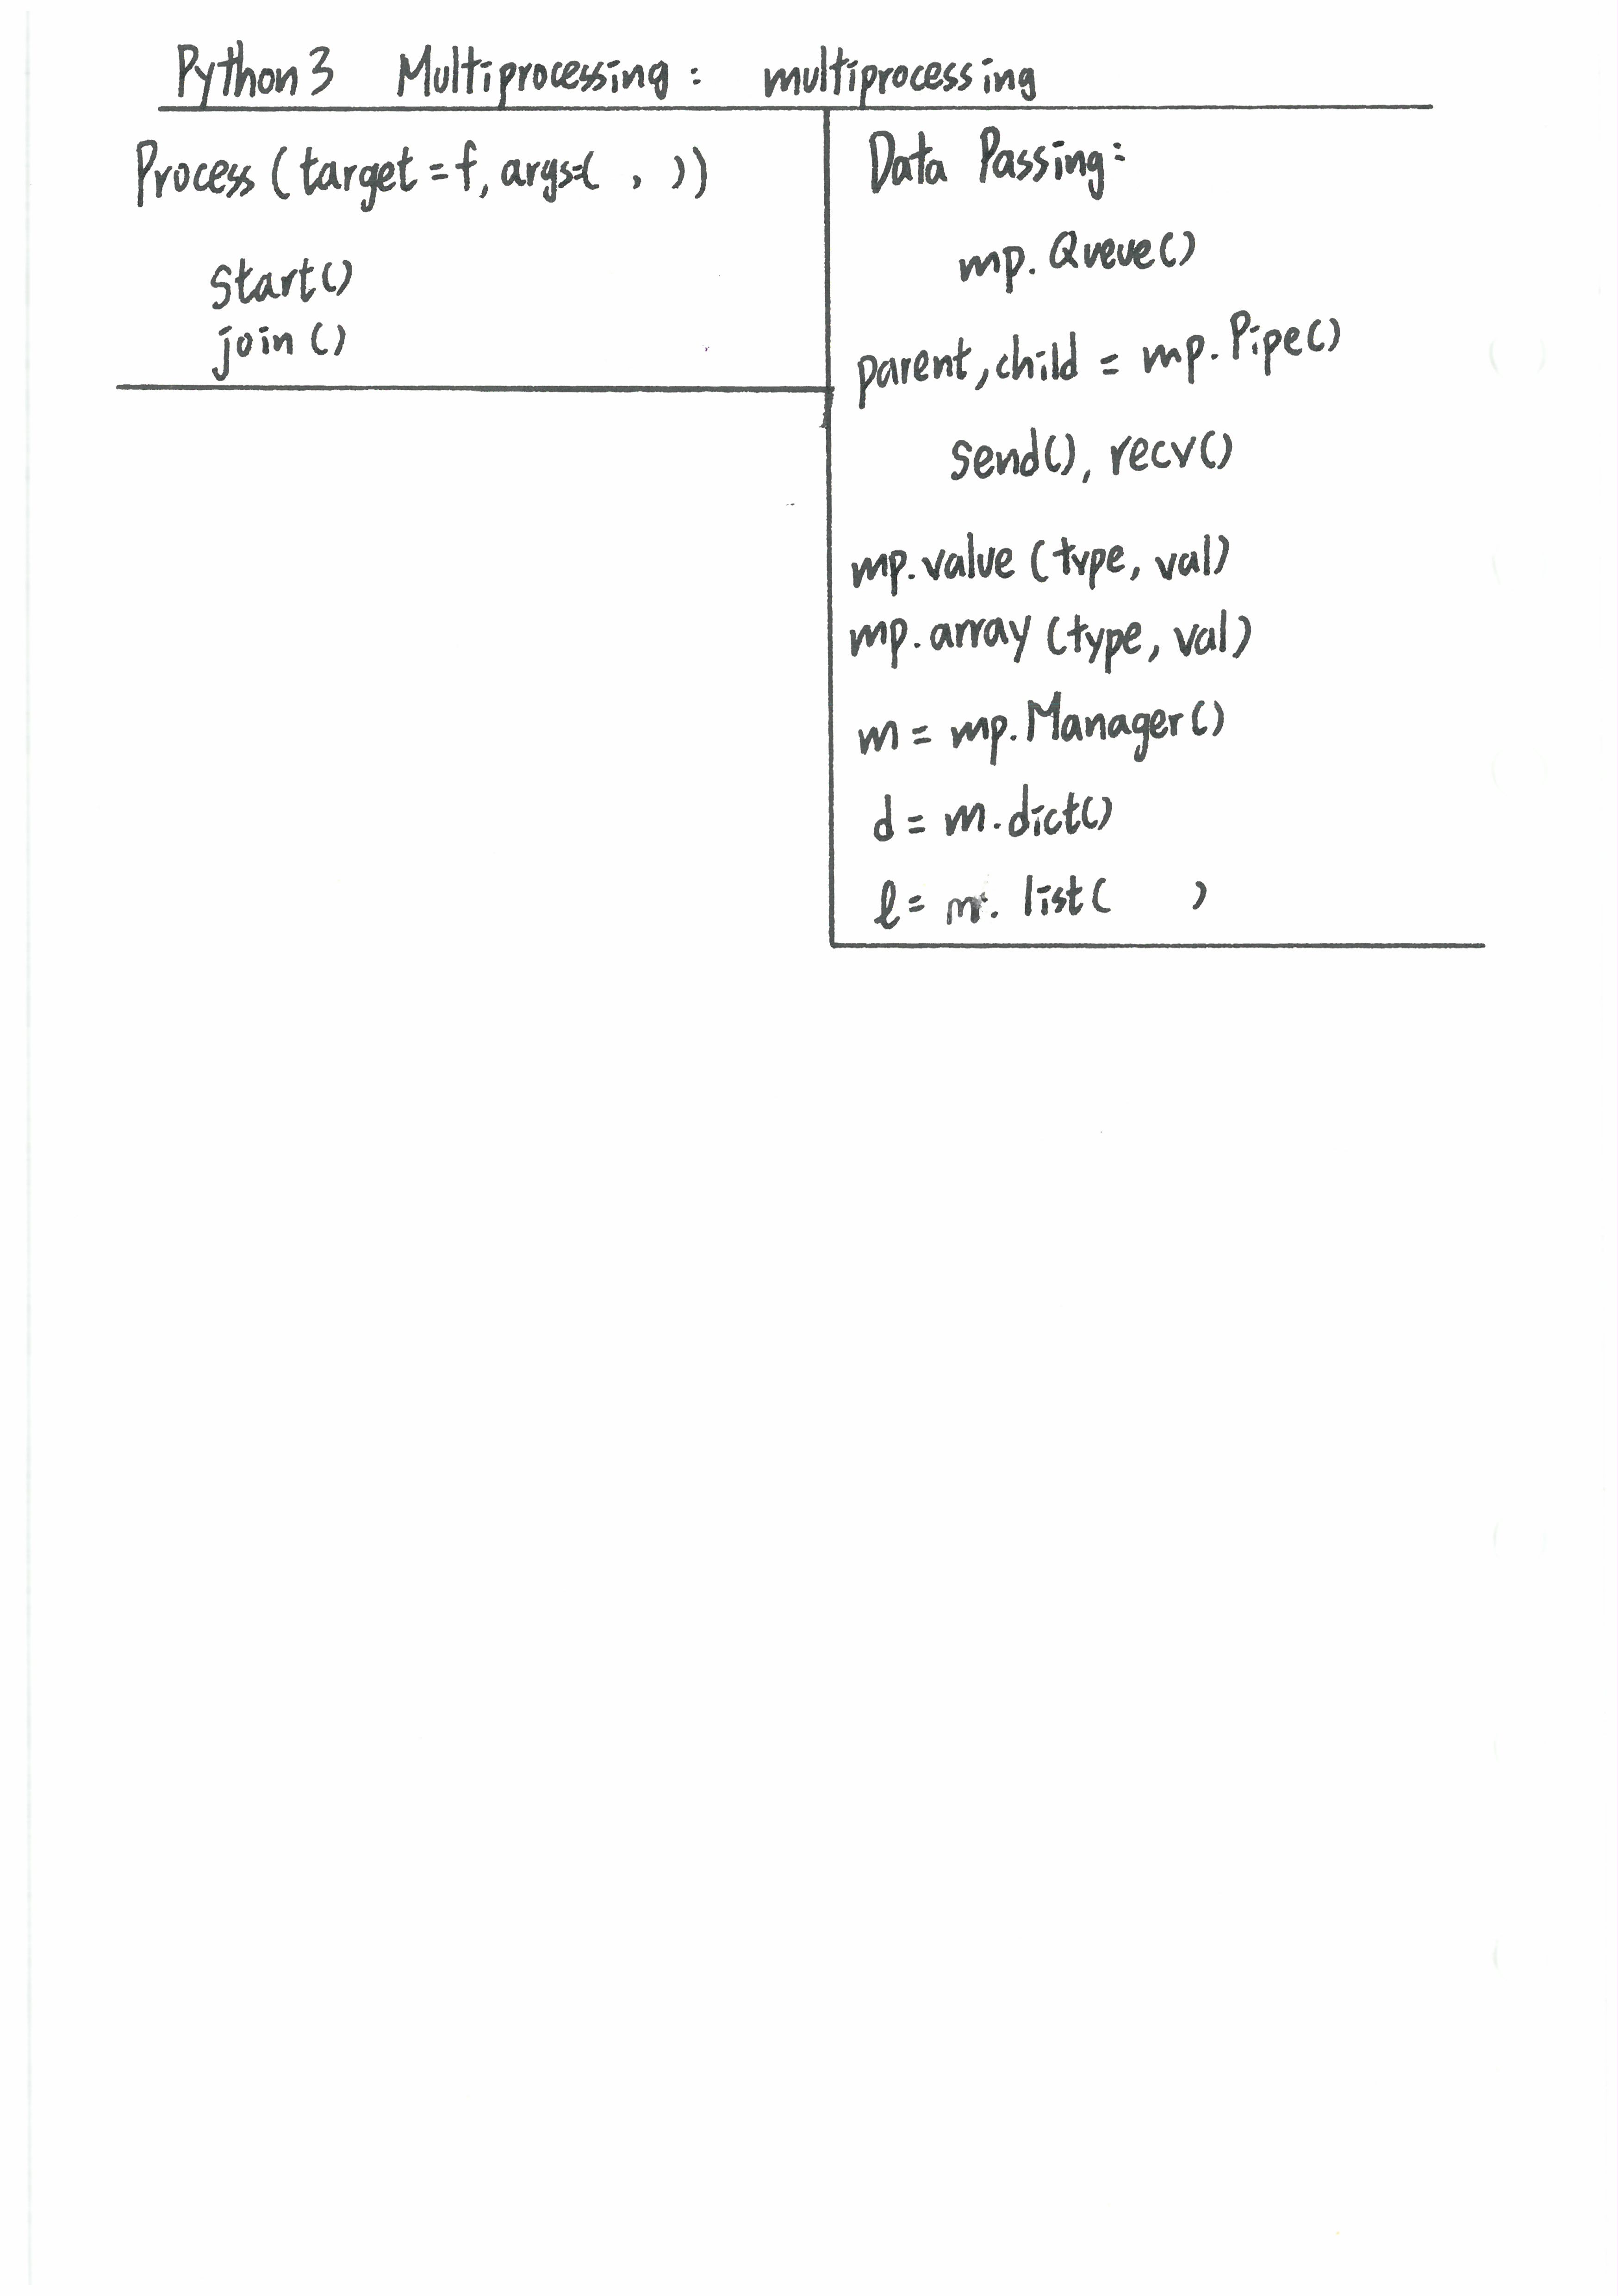 Python3 Multiprocessing: multiprocessing
Process (target=f, args=( , ))
start()
join()
Data Passing:
mp.Queue()
parent, child = mp.Pipe()
send(), recv()
mp.value (type, val)
mp.array (type, val)
m = mp.Manager()
d = m.dict()
l = m. list( )